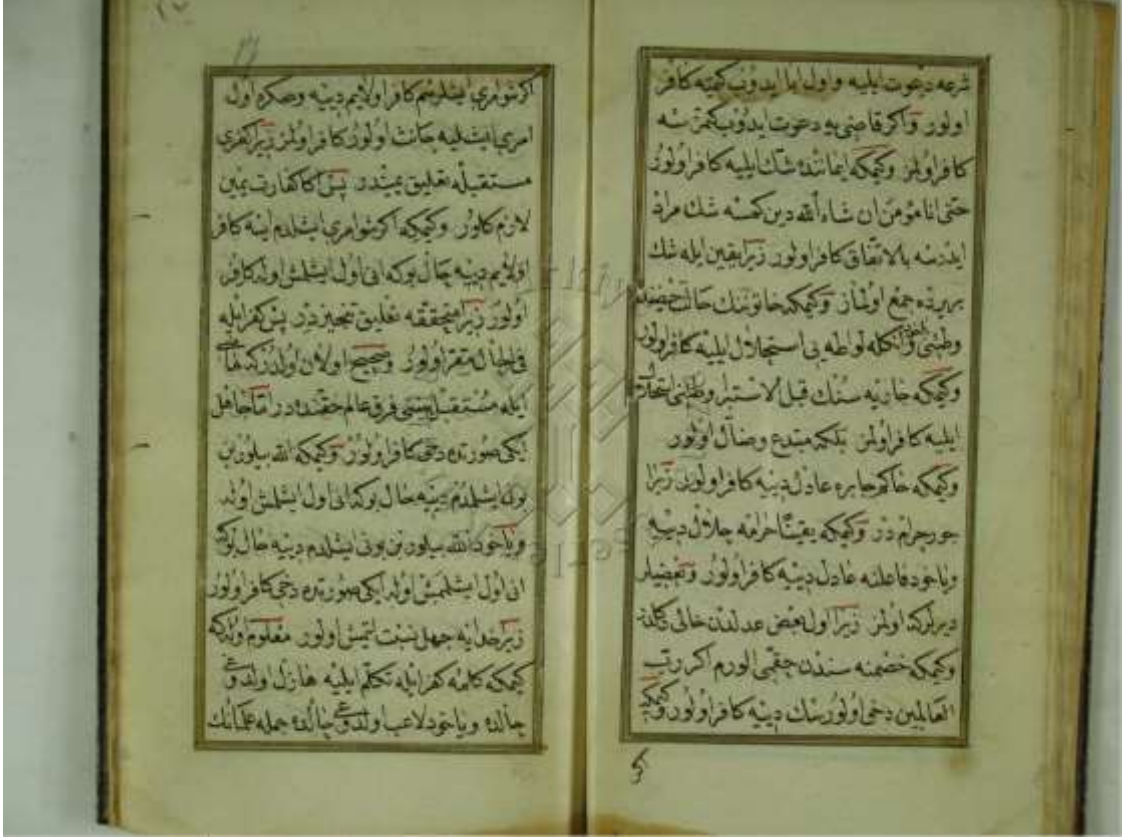 شرعه دعوت ایلیه و اول ابا ایدوب کمیه کافر
اولور و اکر قاضی یه دعوت ایدوب کمزسه
کافر اولمز و کیمکه ایماننده شك ایلیه کافر اولور
حتی انا مؤمن ان شاء الله دین کمسه شك مراد
ایدرسه بالاتفاق کافر اولور زیرا یقین ایله شك
بریرده جمع اولماز و کیمکه خاتوننك حالت حیضنده
وطئنی و انکله لواطه یی استحلال ایلیه کافر اولور
و کیمکه جاریه سنك قبل الاستبرا وطئنی استحلال
ایلیه کافر اولمز بلکه مبتدع و ضال اولور
و کیمکه حاکم جابره عادل دییه کافر اولور زیرا
جور حرام در و کیمکه یقینا حرامه حلال دییه
ویاخود فاعلنه عادل دییه کافر اولور و بعضیلر
دیرلرکه اولمز زیرا اول بعض عدلدن خالی دکلدر
و کیمکه خصمنه سندن حقمی الورم اکر رب
العالمین دخی اولورسك دییه کافر اولور و کیمکه
اکر شو امری ایشلرسم کافر اولایم دییه و صکره اول
امری ایشلیه حانث اولور کافر اولمز زیرا کفری
مستقبله تعلیق یمیندر پس اکا کفارت یمین
لازم کلور و کیمکه اکر شو امری ایشلدم ایسه کافر
اولایم دییه حال بوکه انی اول ایشلمش اولد کافر
اولور زیرا متحققه تعلیق تنجیزدر پس کفر ایله
فی الحال مقر اولور و صحیح اولان اولدرکه ماضی
ایله مستقبل بینی فرق عالم حقنده در اما جاهل
ایکی صورتده دخی کافر اولور و کیمکه الله بیلور بن
بونی ایشلمدم دییه حال بوکه انی اول ایشلمش اولد
ویاخود الله بیلور بن بونی ایشلدم دییه حال بوکه
انی اول ایشلمش اولد ایکی صورتده دخی کافر اولور
زیرا خدایه جهل نسبت ایتمش اولور معلوم اولد که
کیمکه کلمه کفر ایله تکلم ایلیه هازل اولدوغی
حالده ویاخود لاعب اولدوغی حالده جمله علمانك